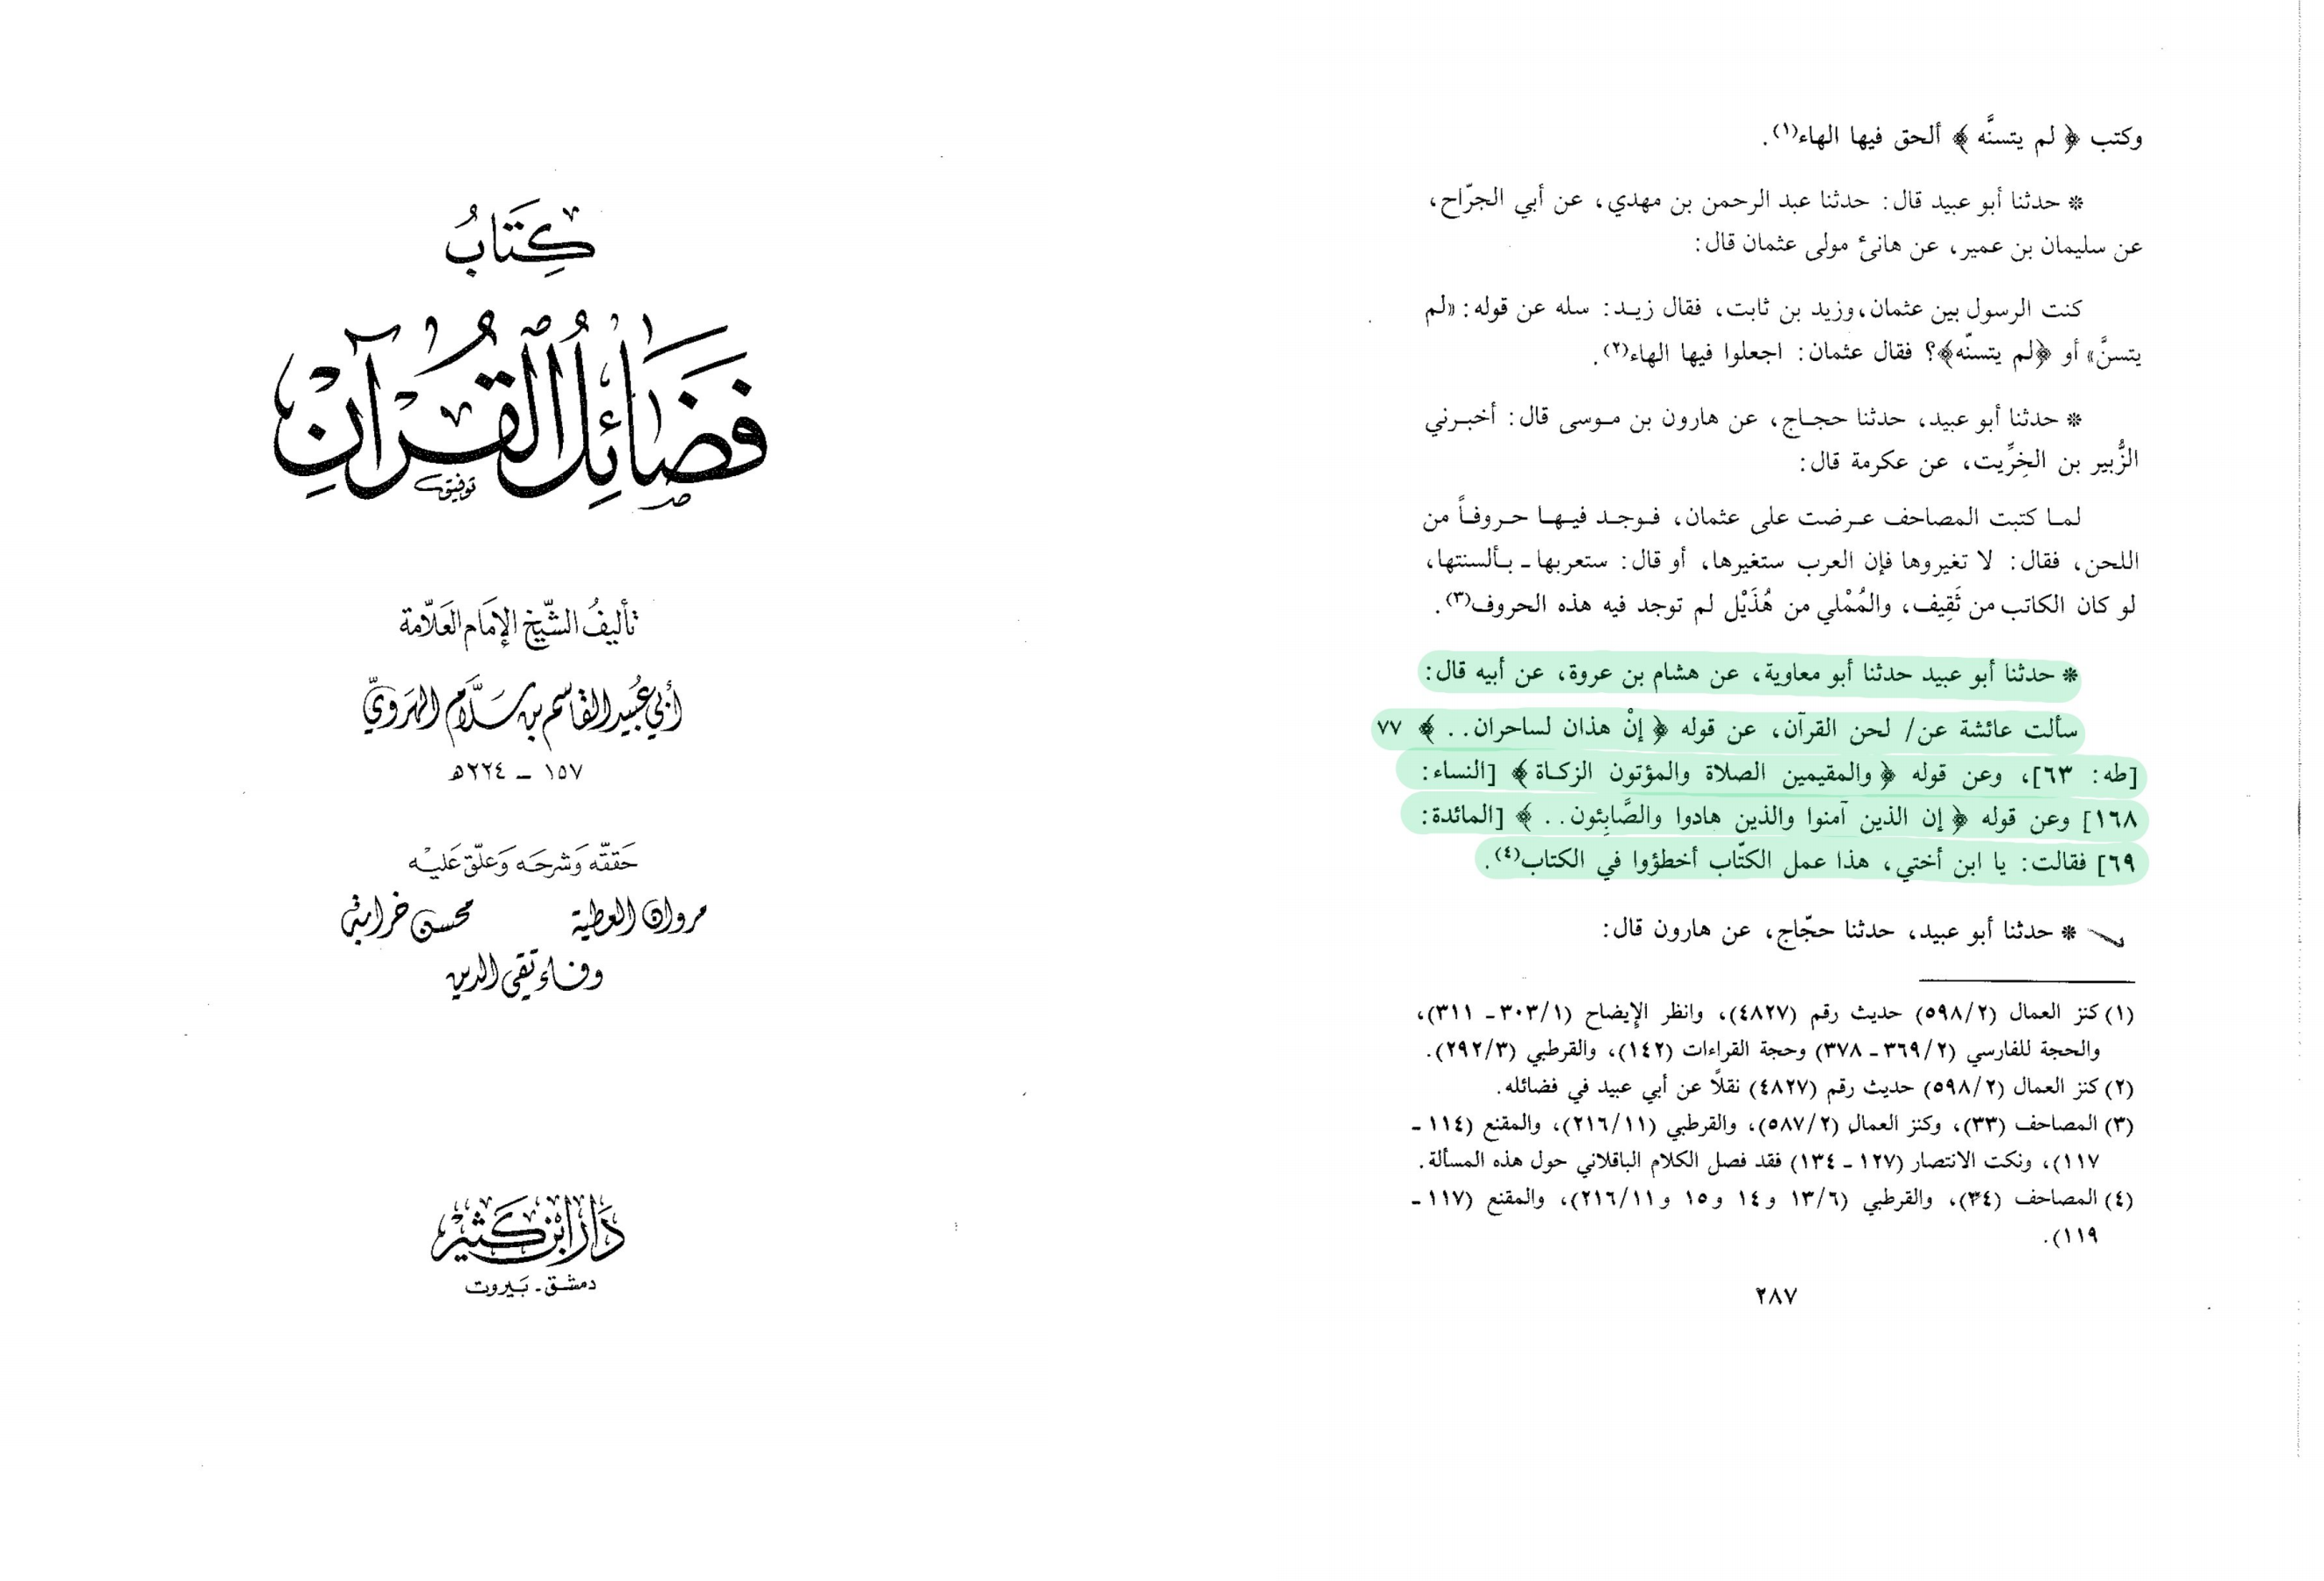 كِتَابُ
فَضَائِلُ القُرْآنِ
توفيق
تأليفُ الشّيخ الإمَام العَلاّمة
أبي عُبيد القاسم بن سَلاَّم الهَرويّ
١٥٧ – ٢٢٤ھ
حَققّه وَشرحَه وَعلّق عَليْه
مروان العطية محسن خرابة
وفاء تقي الدين
دَار ابْن كَثيْر
دمشق ـ بَيروت
وكتب ﴿ لم يتسنَّه ﴾ ألحق فيها الهاء(١).
* حدثنا أبو عبيد قال: حدثنا عبد الرحمن بن مهدي، عن أبي الجرّاح،
عن سليمان بن عمير، عن هانئ مولى عثمان قال:
كنت الرسول بين عثمان،وزيد بن ثابت، فقال زيـد: سله عن قوله: «لم
يتسنَّ» أو ﴿لم يتسنّه﴾؟ فقال عثمان: اجعلوا فيها الهاء(٢).
* حدثنا أبو عبيد، حدثنا حجـاج، عن هارون بن مـوسى قال: أخبـرني
الزُّبير بن الخِرِّيت، عن عكرمة قال:
لمـا كتبت المصاحف عـرضت على عثمان، فـوجـد فيـهـا حـروفـاً من
اللحن، فقال: لا تغيروها فإن العرب ستغيرها، أو قال: ستعربها ـ بـألسنتها،
لو كان الكاتب من ثَقِيف، والمُمْلي من هُذَيْل لم توجد فيه هذه الحروف(٣).
* حدثنا أبو عبيد حدثنا أبو معاوية، عن هشام بن عروة، عن أبيه قال:
سألت عائشة عن/ لحن القرآن، عن قوله ﴿ إنْ هذان لساحران.. ﴾ ٧٧
[طه: ٦٣]، وعن قوله ﴿ والمقيمين الصلاة والمؤتون الزكـاة ﴾ [النساء:
١٦٨] وعن قوله ﴿ إن الذين آمنوا والذين هادوا والصَّابِئون.. ﴾ [المائدة:
٦٩] فقالت: يا ابن أختي، هذا عمل الكتّاب أخطؤوا في الكتاب(٤).
* حدثنا أبو عبيد، حدثنا حجّاج، عن هارون قال:
(١) كنز العمال (٥٩٨/٢) حديث رقم (٤٨٢٧)، وانظر الإيضاح (٣٠٣/١ ـ ٣١١)،
والحجة للفارسي (٣٦٩/٢ ـ ٣٧٨) وحجة القراءات (١٤٢)، والقرطبي (٢٩٢/٣).
(٢) كنز العمال (٥٩٨/٢) حديث رقم (٤٨٢٧) نقلاً عن أبي عبيد في فضائله.
(٣) المصاحف (٣٣)، وكنز العمال (٥٨٧/٢)، والقرطبي (٢١٦/١١)، والمقنع (١١٤ ـ
١١٧)، ونكت الانتصار (١٢٧ ـ ١٣٤) فقد فصل الكلام الباقلاني حول هذه المسألة.
(٤) المصاحف (٣٤)، والقرطبي (١٣/٦ و ١٤ و ١٥ و ٢١٦/١١)، والمقنع (١١٧ ـ
١١٩).
٢٨٧